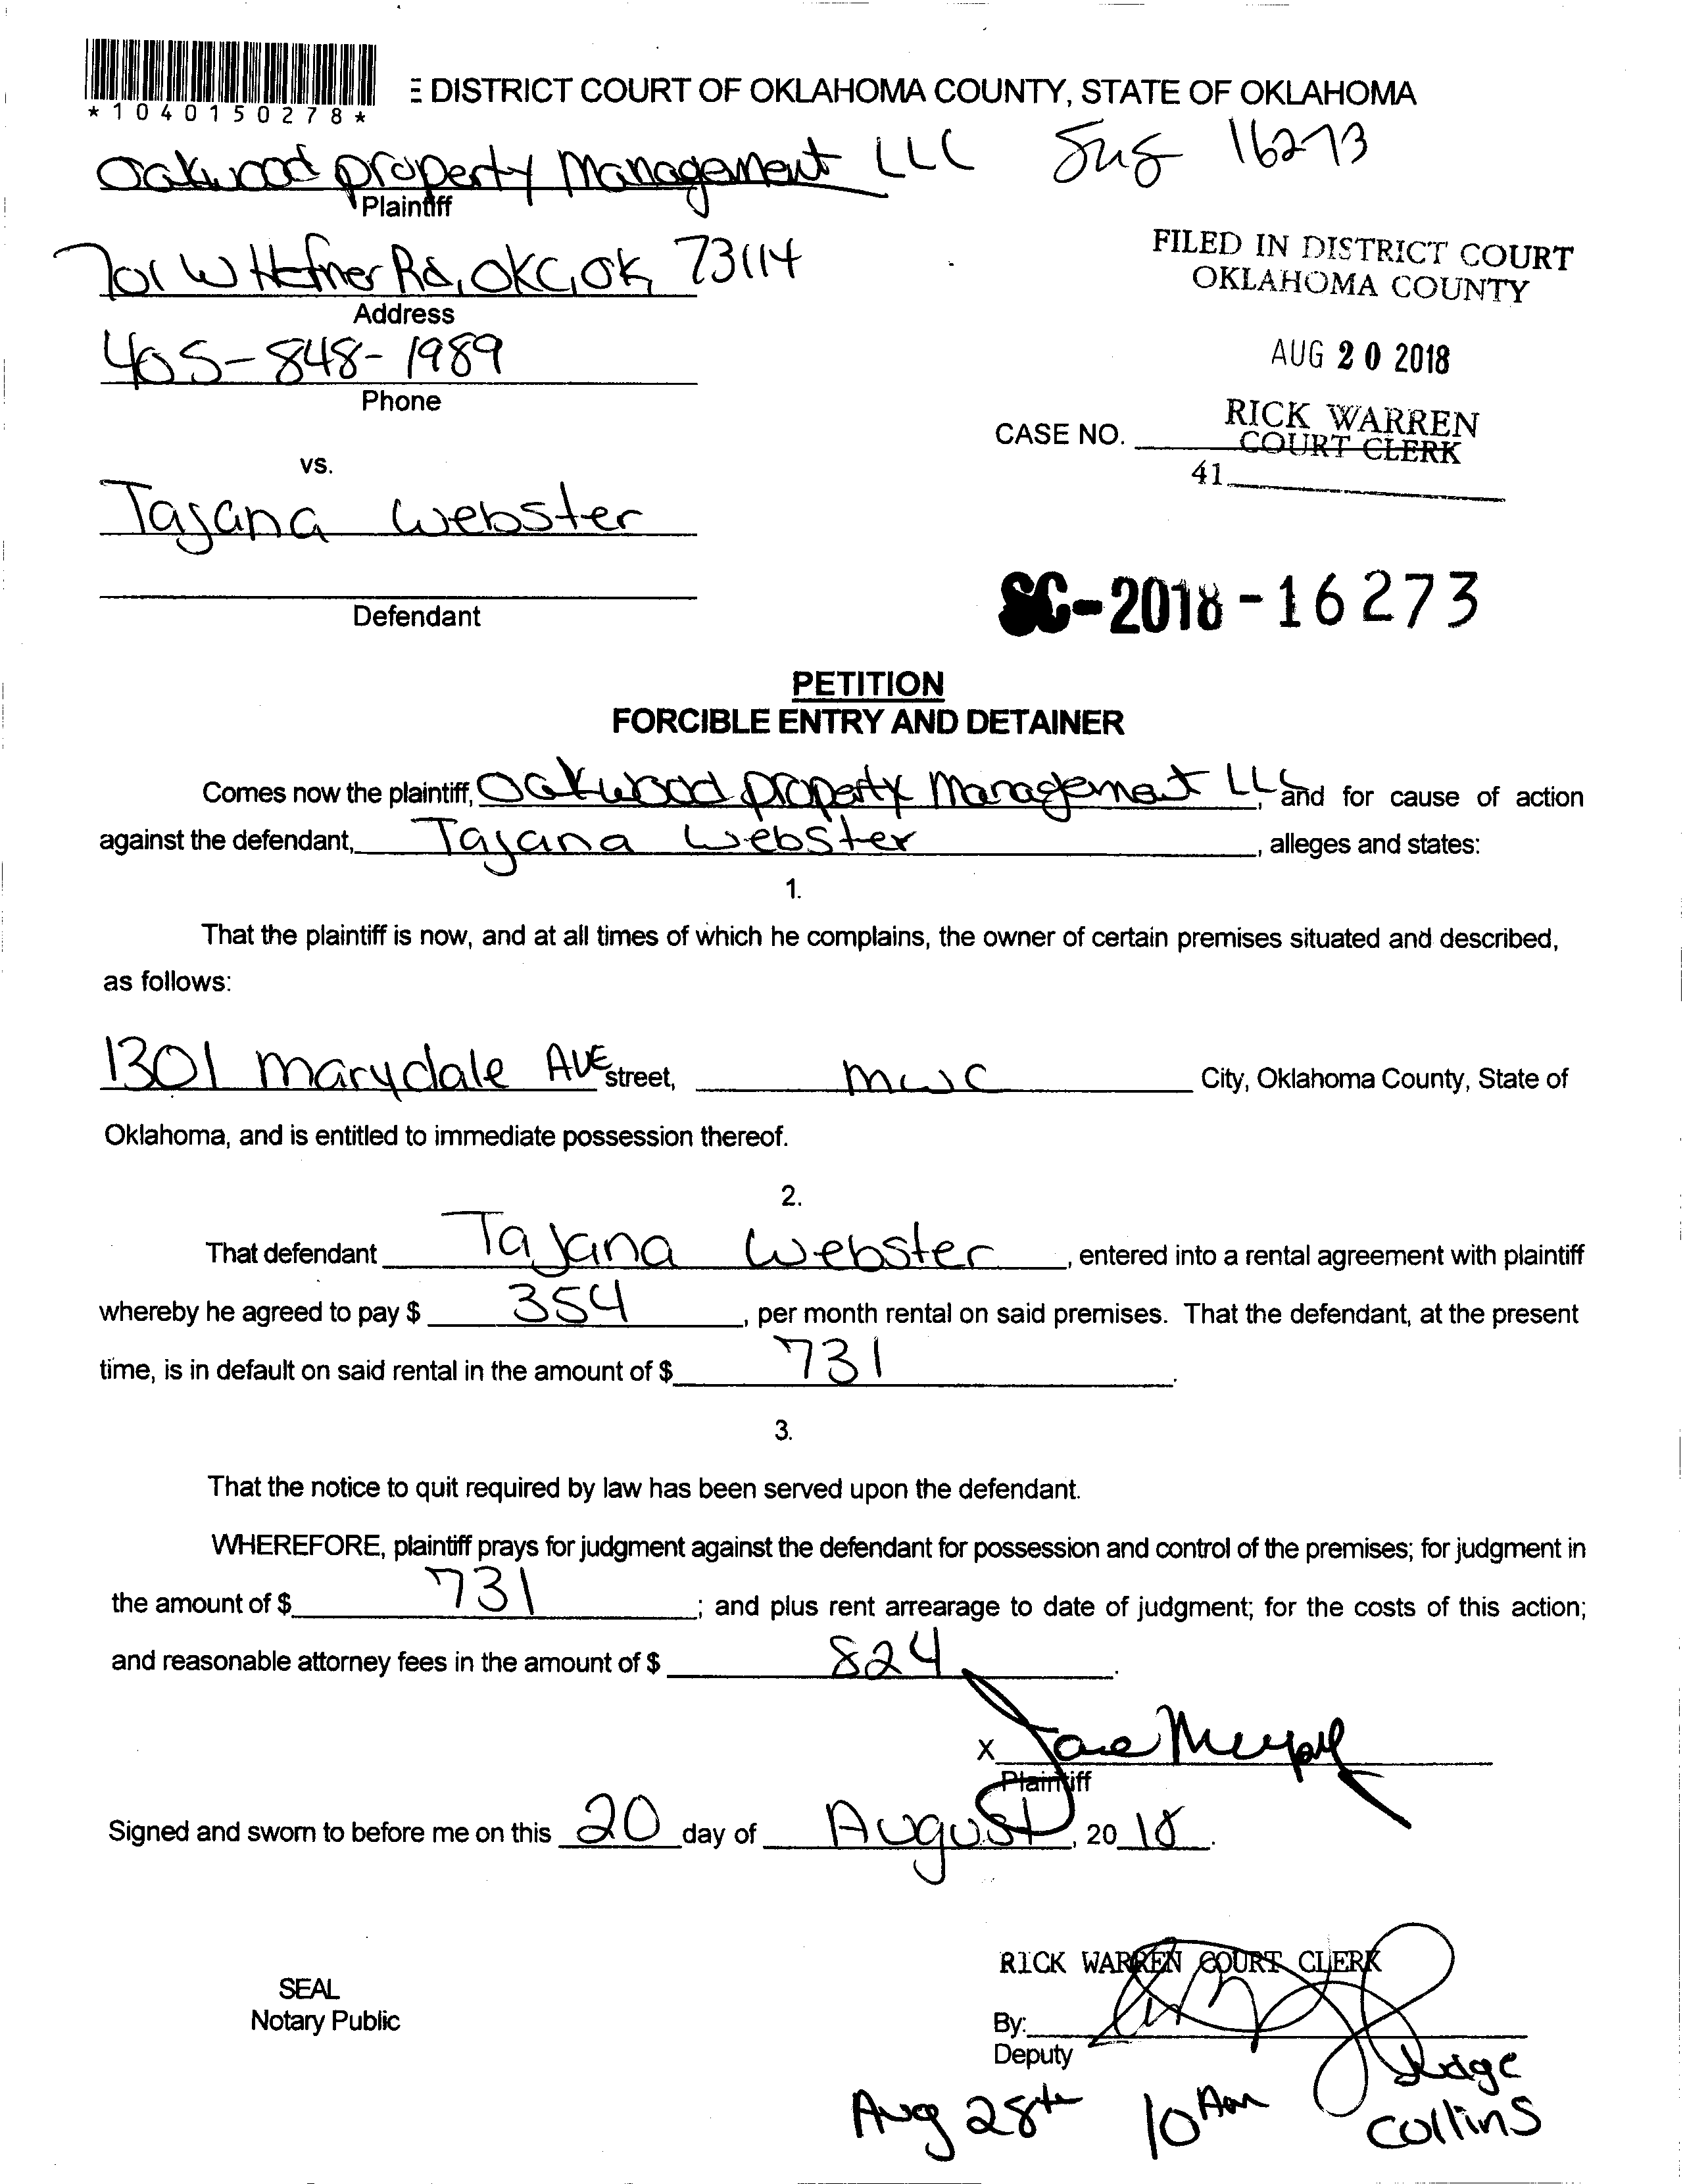 *1040150278*
E DISTRICT COURT OF OKLAHOMA COUNTY, STATE OF OKLAHOMA
Oakwood property Management LLC
16273
Plaintiff
701 W Hefner Rd, OKC, OK 73114
Address
FILED IN DISTRICT COURT
OKLAHOMA COUNTY
405-848-1989
Phone
AUG 20 2018
RICK WARREN
CASE NO. COURT CLERK
41
vs.
Tajana Webster
Defendant
SC-2018-16273
PETITION
FORCIBLE ENTRY AND DETAINER
Comes now the plaintiff, Oakwood property Management LLC, and for cause of action
against the defendant, Tajana Webster, alleges and states:
1.
That the plaintiff is now, and at all times of which he complains, the owner of certain premises situated and described,
as follows:
1301 Marydale AVE street, MWC City, Oklahoma County, State of
Oklahoma, and is entitled to immediate possession thereof.
2.
That defendant Tajana Webster, entered into a rental agreement with plaintiff
whereby he agreed to pay $ 354, per month rental on said premises. That the defendant, at the present
time, is in default on said rental in the amount of $ 731.
3.
That the notice to quit required by law has been served upon the defendant.
WHEREFORE, plaintiff prays for judgment against the defendant for possession and control of the premises; for judgment in
the amount of $ 731; and plus rent arrearage to date of judgment; for the costs of this action;
and reasonable attorney fees in the amount of $ 824.
X
Plaintiff
Signed and sworn to before me on this 20 day of August, 20 18.
RICK WARREN COURT CLERK
SEAL
Notary Public
By:
Deputy
Judge
Aug 28th 10 Am
Collins